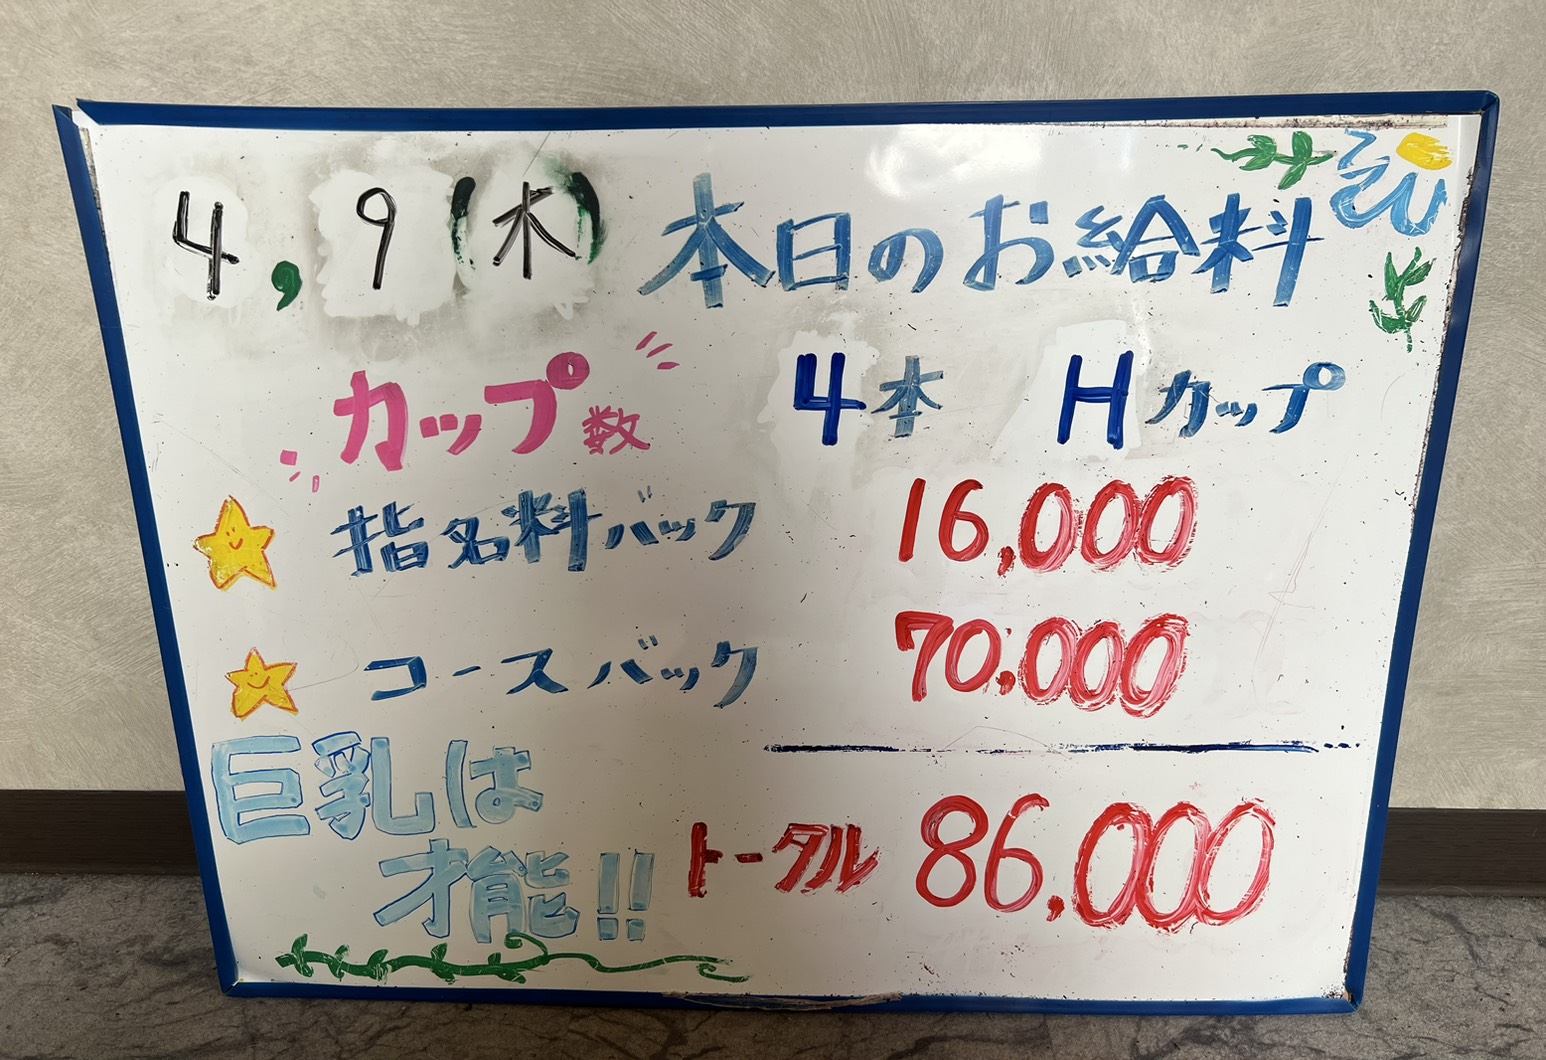 4,9(木) 本日のお給料
カップ数 4本 Hカップ
指名料バック 16,000
コースバック 70,000
巨乳は
才能!!
トータル 86,000